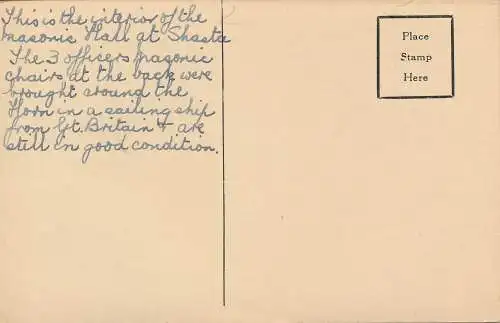 This is the interior of the
Masonic Hall at Shasta
The 3 officers masonic
chairs at the back were
brought around the
Horn in a sailing ship
from Gt. Britain & are
still in good condition.
Place
Stamp
Here